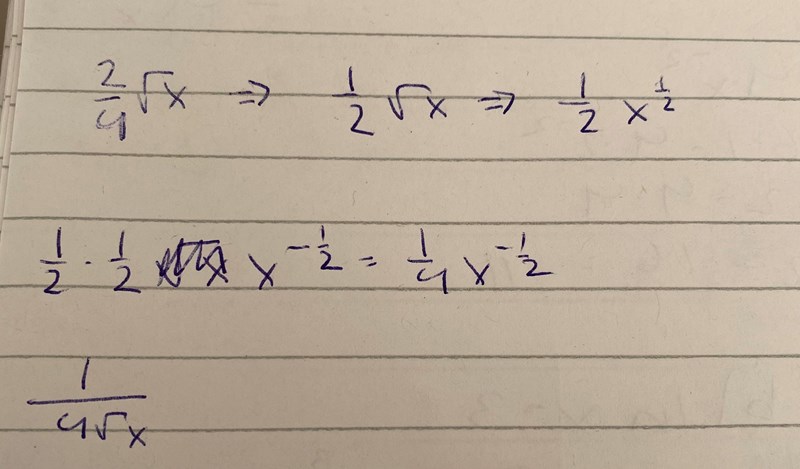 2/4 √x ⇒ 1/2 √x ⇒ 1/2 x^(1/2)
1/2 · 1/2 x^(-1/2) = 1/4 x^(-1/2)
1/(4√x)